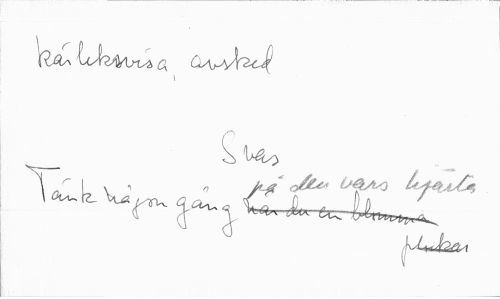 kärleksvisa, avsked
Svas
på den vars hjärta
Tänk någon gång när du en blomma
plukar